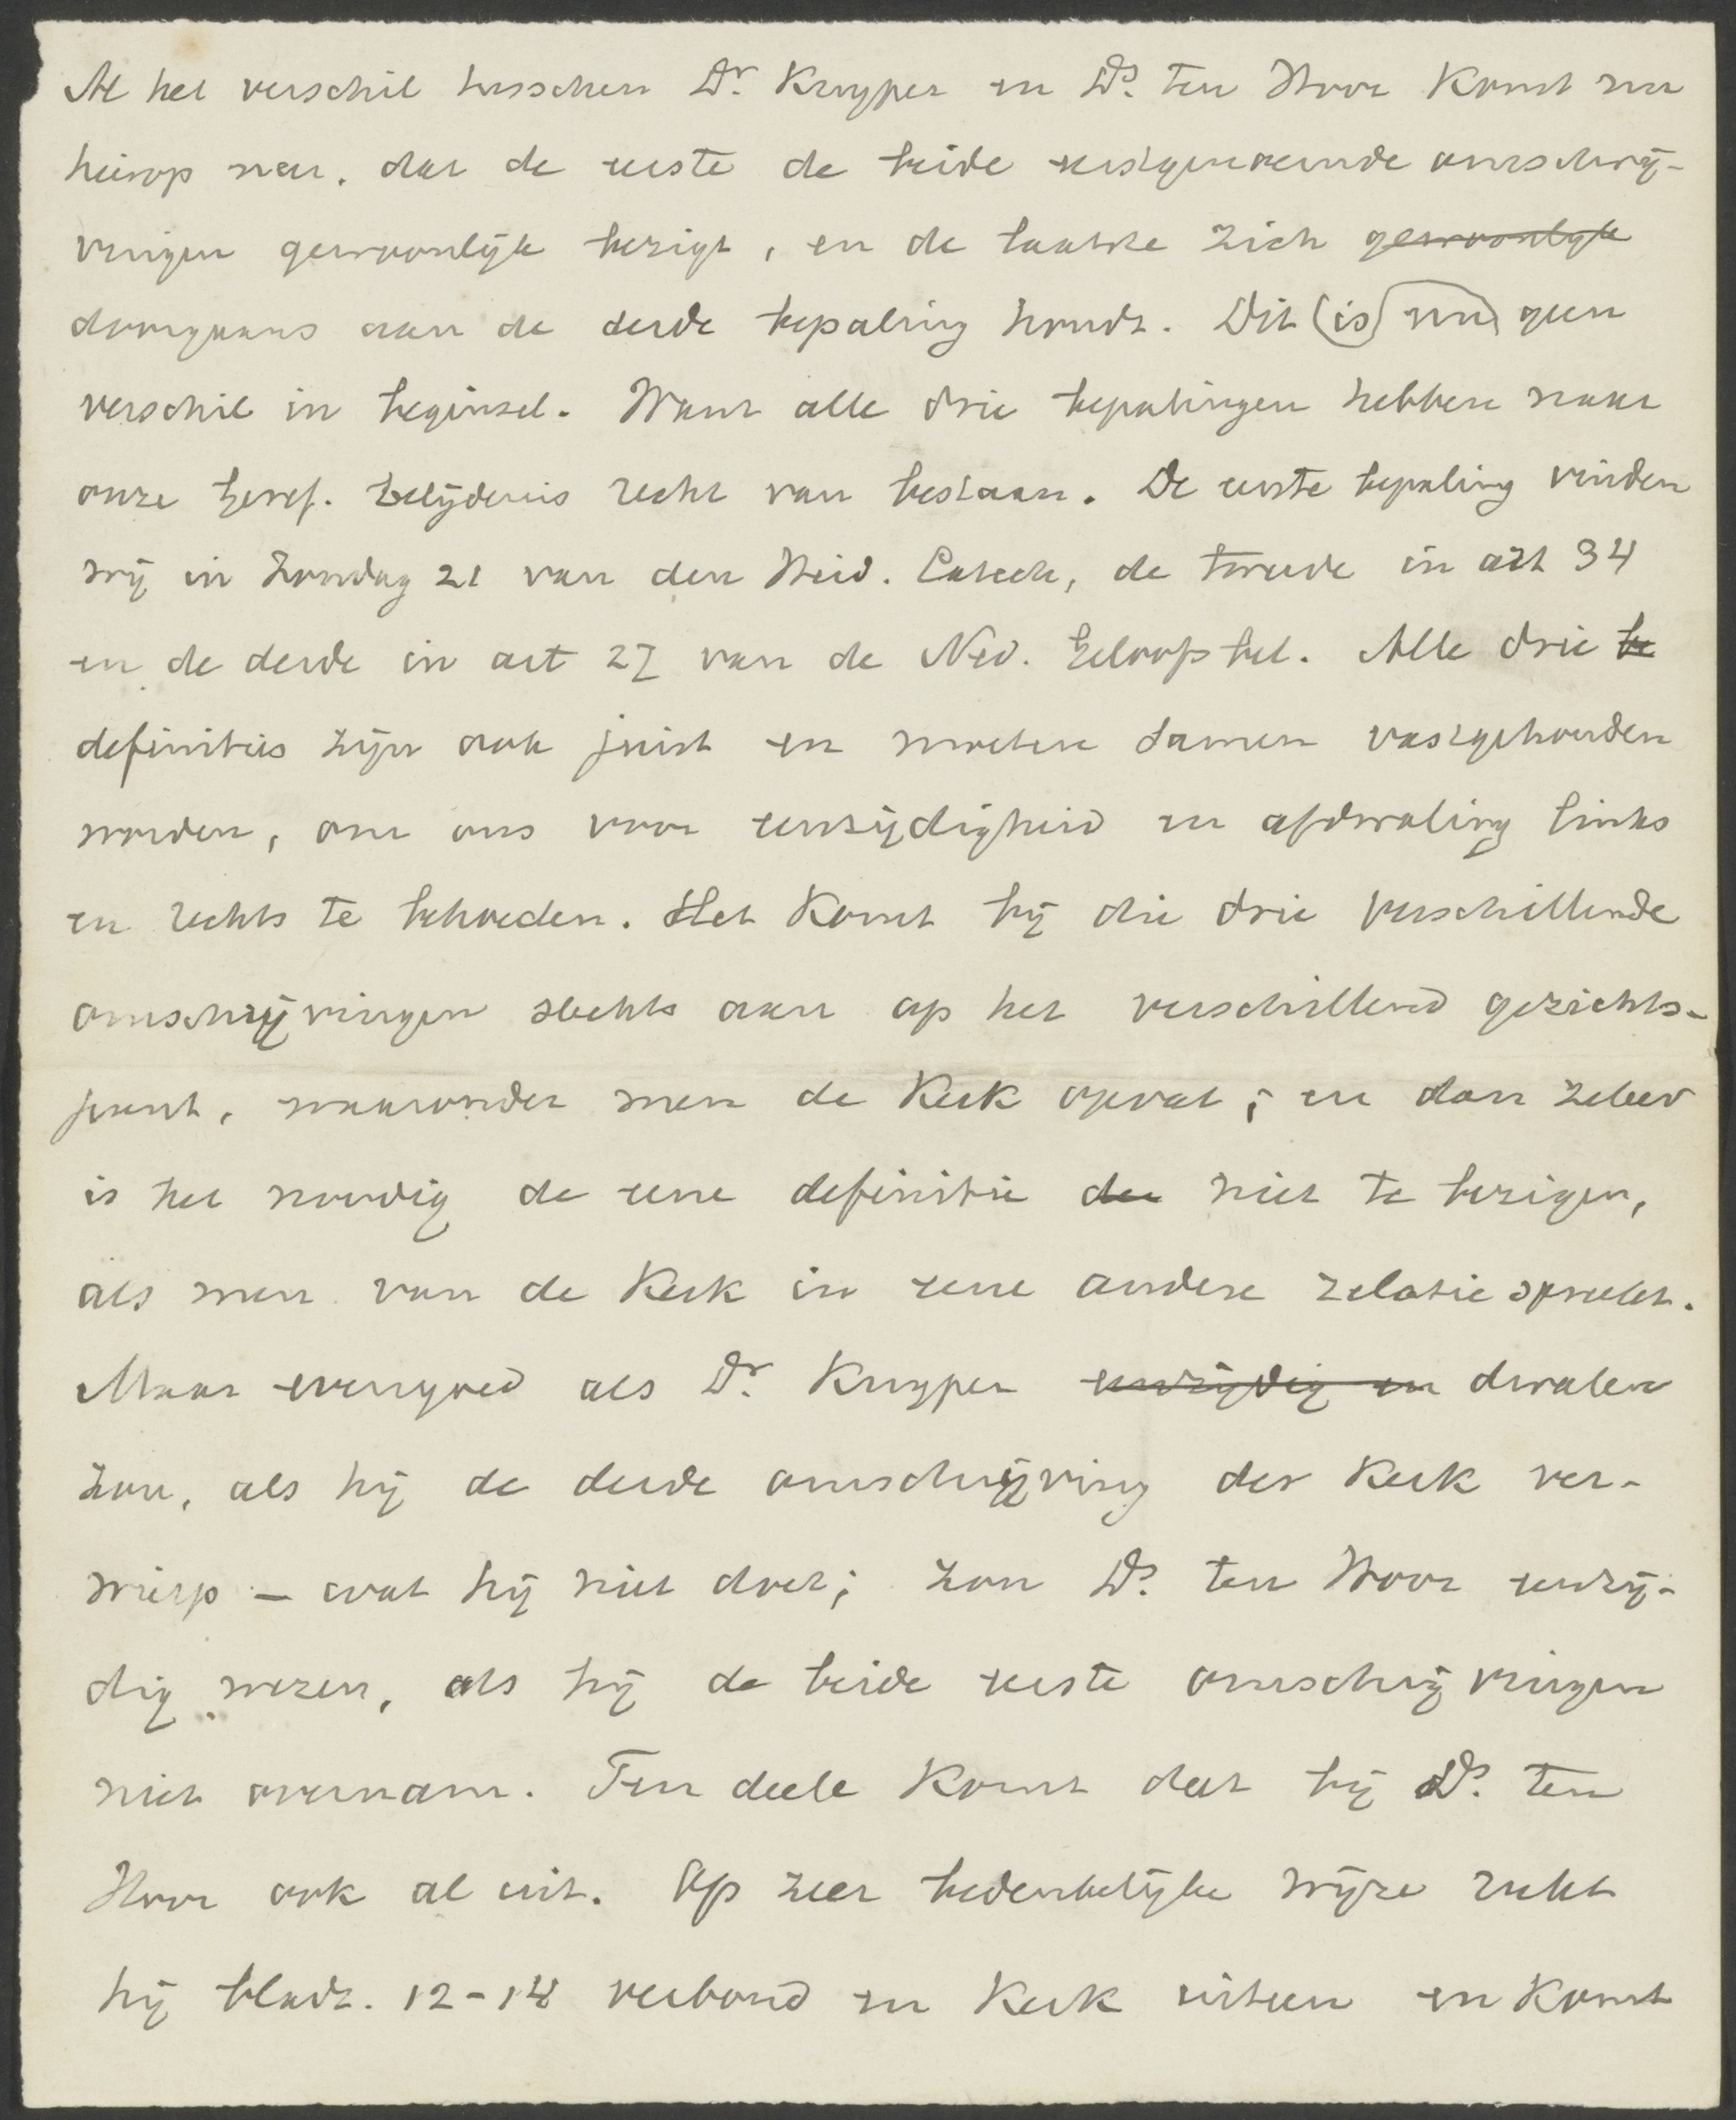 Al het verschil tusschen Dr. Kuyper en Ds. ten Hoor komt nu
hierop neer, dat de eerste de beide eerstgenoemde omschrij-
vingen gewoonlijk bezigt, en de laatste zich gewoonlijk
doorgaans aan de derde bepaling houdt. Dit (is) nu geen
verschil in beginsel. Want alle drie bepalingen hebben naar
onze Geref. Belijdenis recht van bestaan. De eerste bepaling vinden
wij in Zondag 21 van den Heid. Catech, de tweede in art 34
en de derde in art 27 van de Ned. Geloofsbel. Alle drie be
definities zijn ook juist en moeten samen vastgehouden
worden, om ons voor eenzijdigheid en afdwaling links
en rechts te behoeden. Het komt bij die drie verschillende
omschrijvingen slechts aan op het verschillend gezichts-
punt, waaronder men de Kerk opvat; en dan zeker
is het noodig de eene definitie de niet te bezigen,
als men van de Kerk in eene andere relatie spreekt.
Maar evengoed als Dr. Kuyper eenzijdig en dwalen
zou, als hij de derde omschrijving der Kerk ver-
wierp - wat hij niet doet; zou Ds. ten Hoor eenzij-
dig wezen, als hij de beide eerste omschrijvingen
niet overnam. Ten deele komt dat bij Ds. ten
Hoor ook al uit. Op zeer bedenkelijke wijze rukt
hij bladz. 12-14 verbond en Kerk uiteen en komt